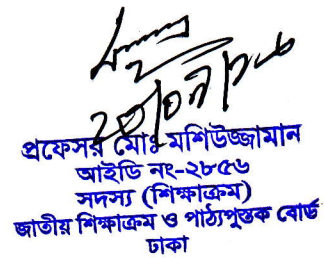 ২৩/০৭/১৮
প্রফেসর মোঃ মশিউজ্জামান
আইডি নং-২৮৫৬
সদস্য (শিক্ষাক্রম)
জাতীয় শিক্ষাক্রম ও পাঠ্যপুস্তক বোর্ড
ঢাকা